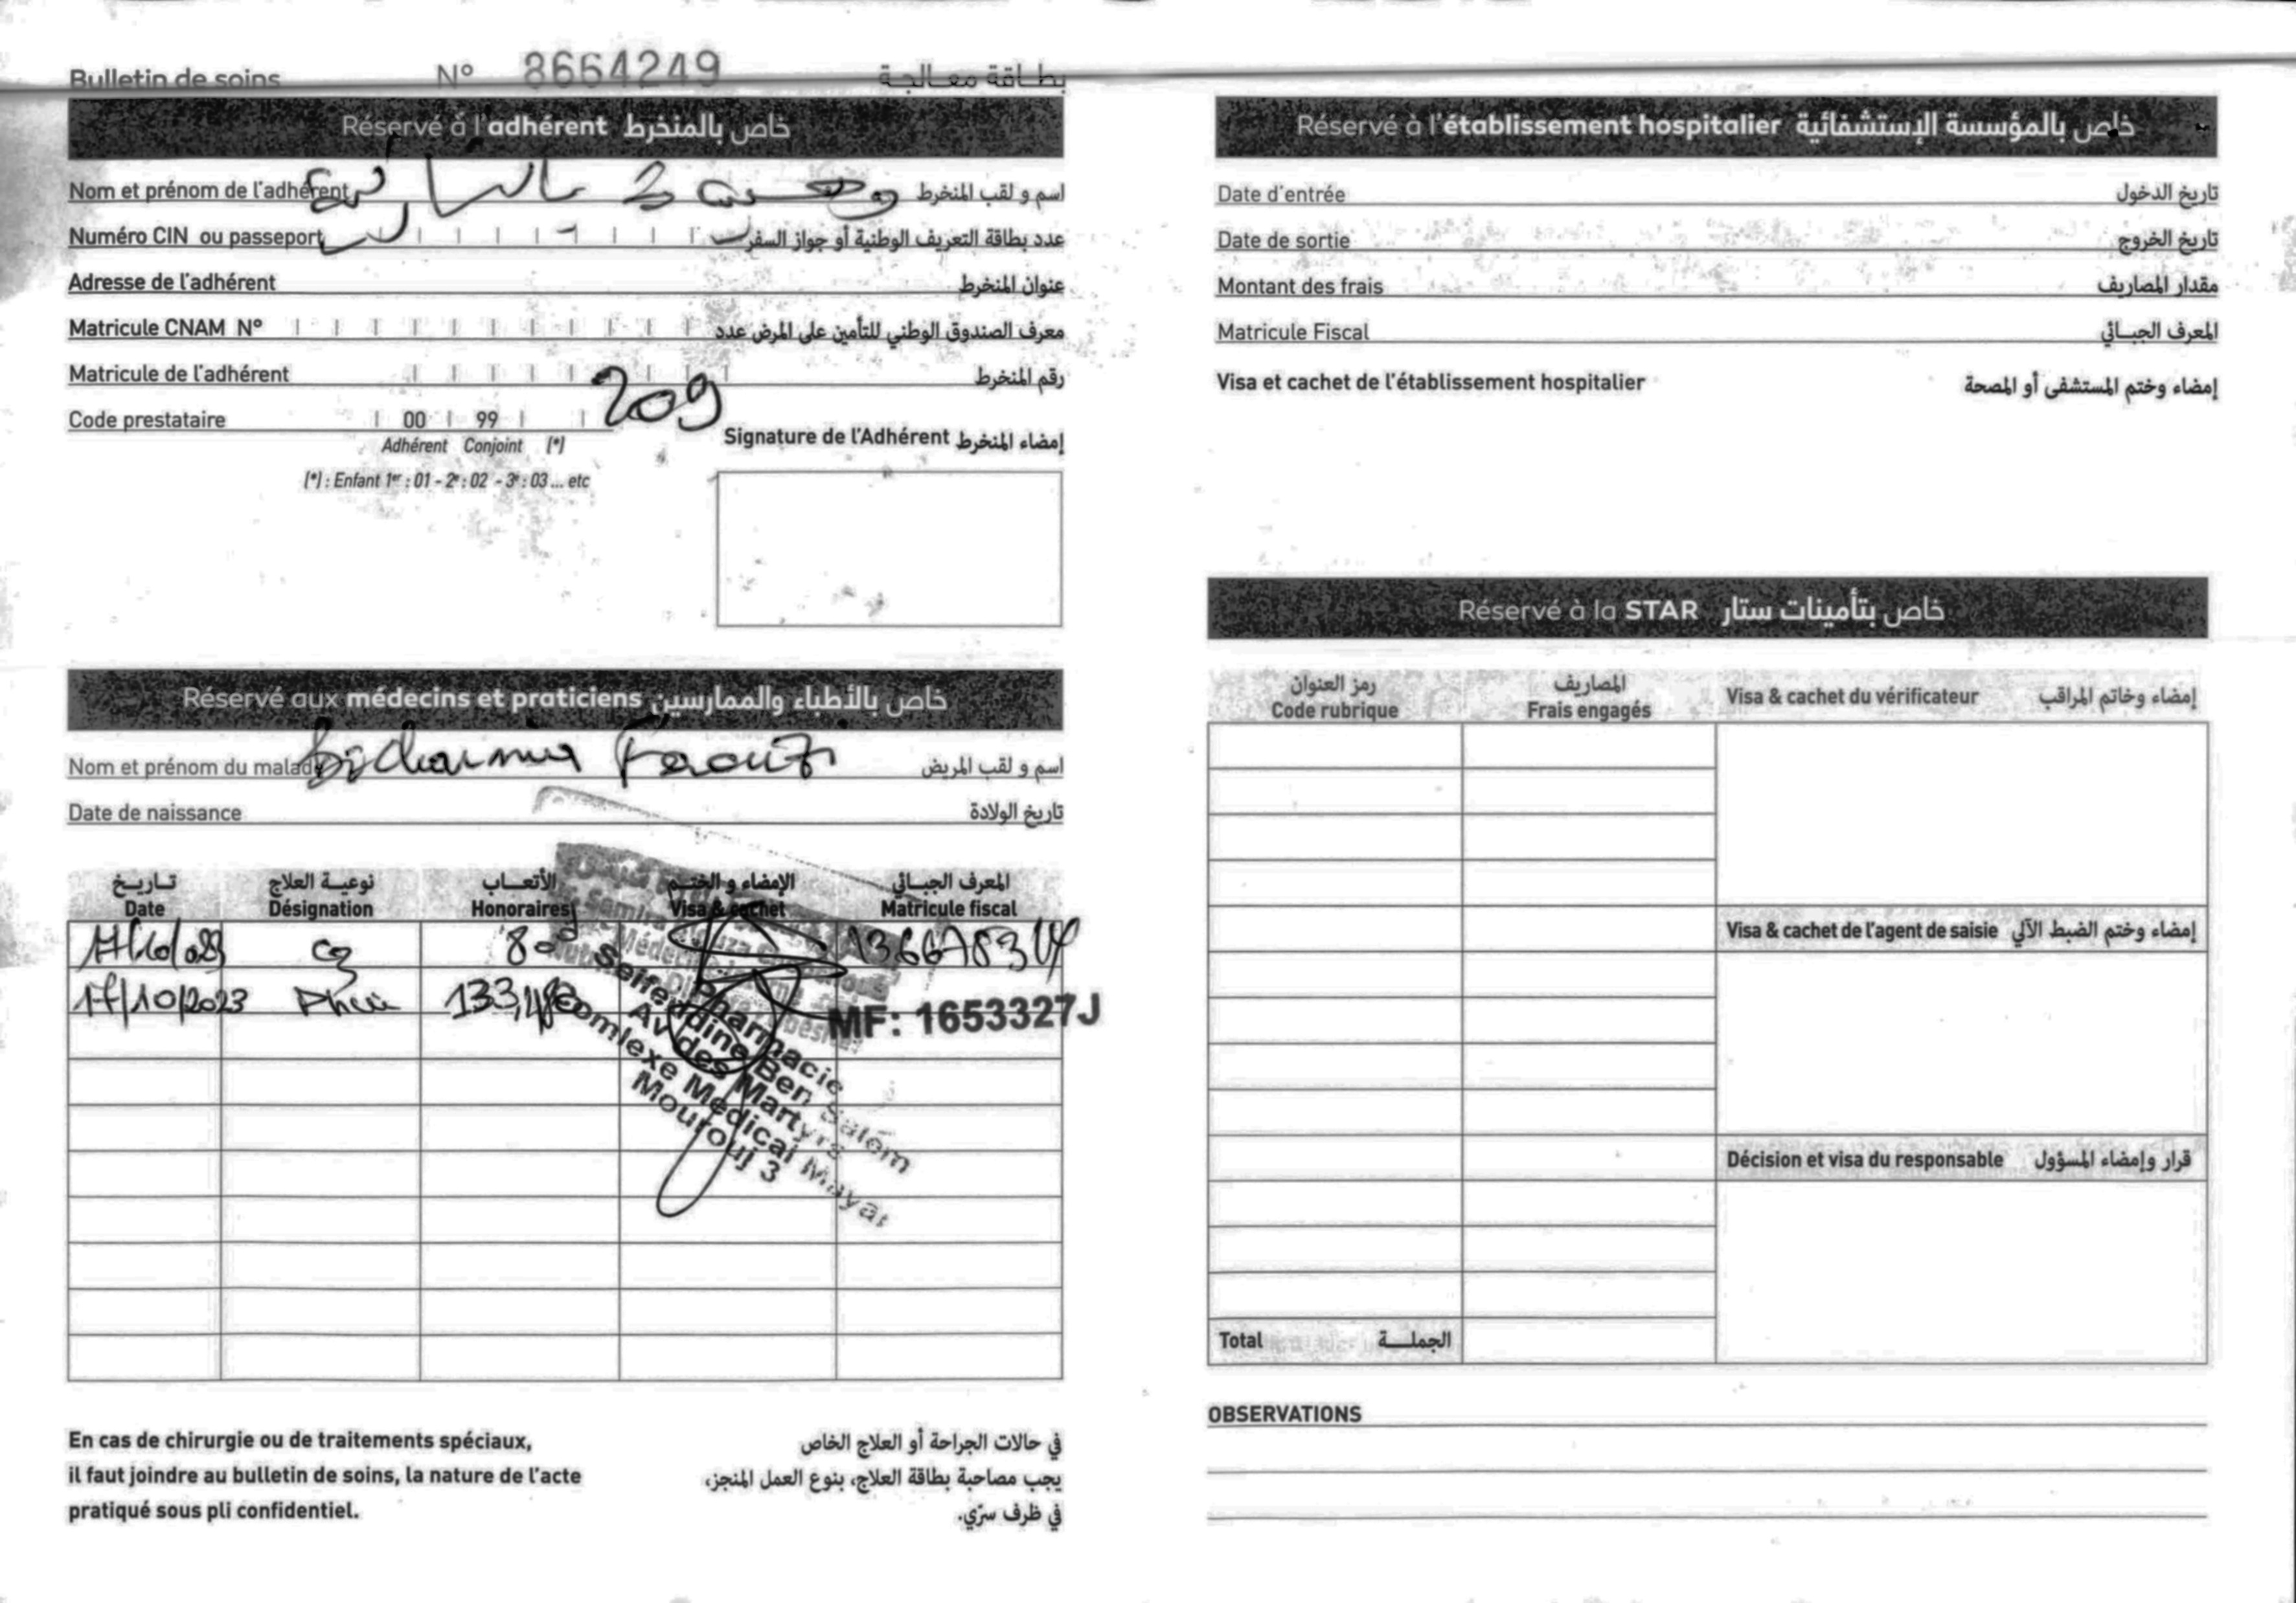 Bulletin de soins N° 8664249 بطاقة معالجة
Réservé à l'adhérent خاص بالمنخرط
Nom et prénom de l'adhérent اسم و لقب المنخرط
Numéro CIN ou passeport عدد بطاقة التعريف الوطنية أو جواز السفر
Adresse de l'adhérent عنوان المنخرط
Matricule CNAM N° معرف الصندوق الوطني للتأمين على المرض عدد
Matricule de l'adhérent رقم المنخرط
209
Code prestataire 00 99
Adhérent Conjoint (*)
(*) : Enfant 1er : 01 - 2e : 02 - 3e : 03 ... etc
Signature de l'Adhérent إمضاء المنخرط
Réservé aux médecins et praticiens خاص بالأطباء والممارسين
Nom et prénom du malade Faouzi اسم و لقب المريض
Date de naissance تاريخ الولادة
تـاريـخ نوعيـة العلاج الأتعـاب الإمضاء و الختـم المعرف الجبـائي
Date Désignation Honoraires Visa & cachet Matricule fiscal
17/10/023 80
17/10/2023 MF: 1653327J
Pharmacie
Seifeddine Ben Salem
Av des Martyrs
Comlexe Medical Mayar
Mourouj 3
En cas de chirurgie ou de traitements spéciaux,
il faut joindre au bulletin de soins, la nature de l'acte
pratiqué sous pli confidentiel.
في حالات الجراحة أو العلاج الخاص
يجب مصاحبة بطاقة العلاج، بنوع العمل المنجز،
في ظرف سرّي.
Réservé à l'établissement hospitalier خاص بالمؤسسة الإستشفائية
Date d'entrée تاريخ الدخول
Date de sortie تاريخ الخروج
Montant des frais مقدار المصاريف
Matricule Fiscal المعرف الجبـائي
Visa et cachet de l'établissement hospitalier إمضاء وختم المستشفى أو المصحة
Réservé à la STAR خاص بتأمينات ستار
رمز العنوان المصاريف
Code rubrique Frais engagés Visa & cachet du vérificateur إمضاء وخاتم المراقب
Visa & cachet de l'agent de saisie إمضاء وختم الضبط الآلي
Décision et visa du responsable قرار وإمضاء المسؤول
Total الجملـة
OBSERVATIONS